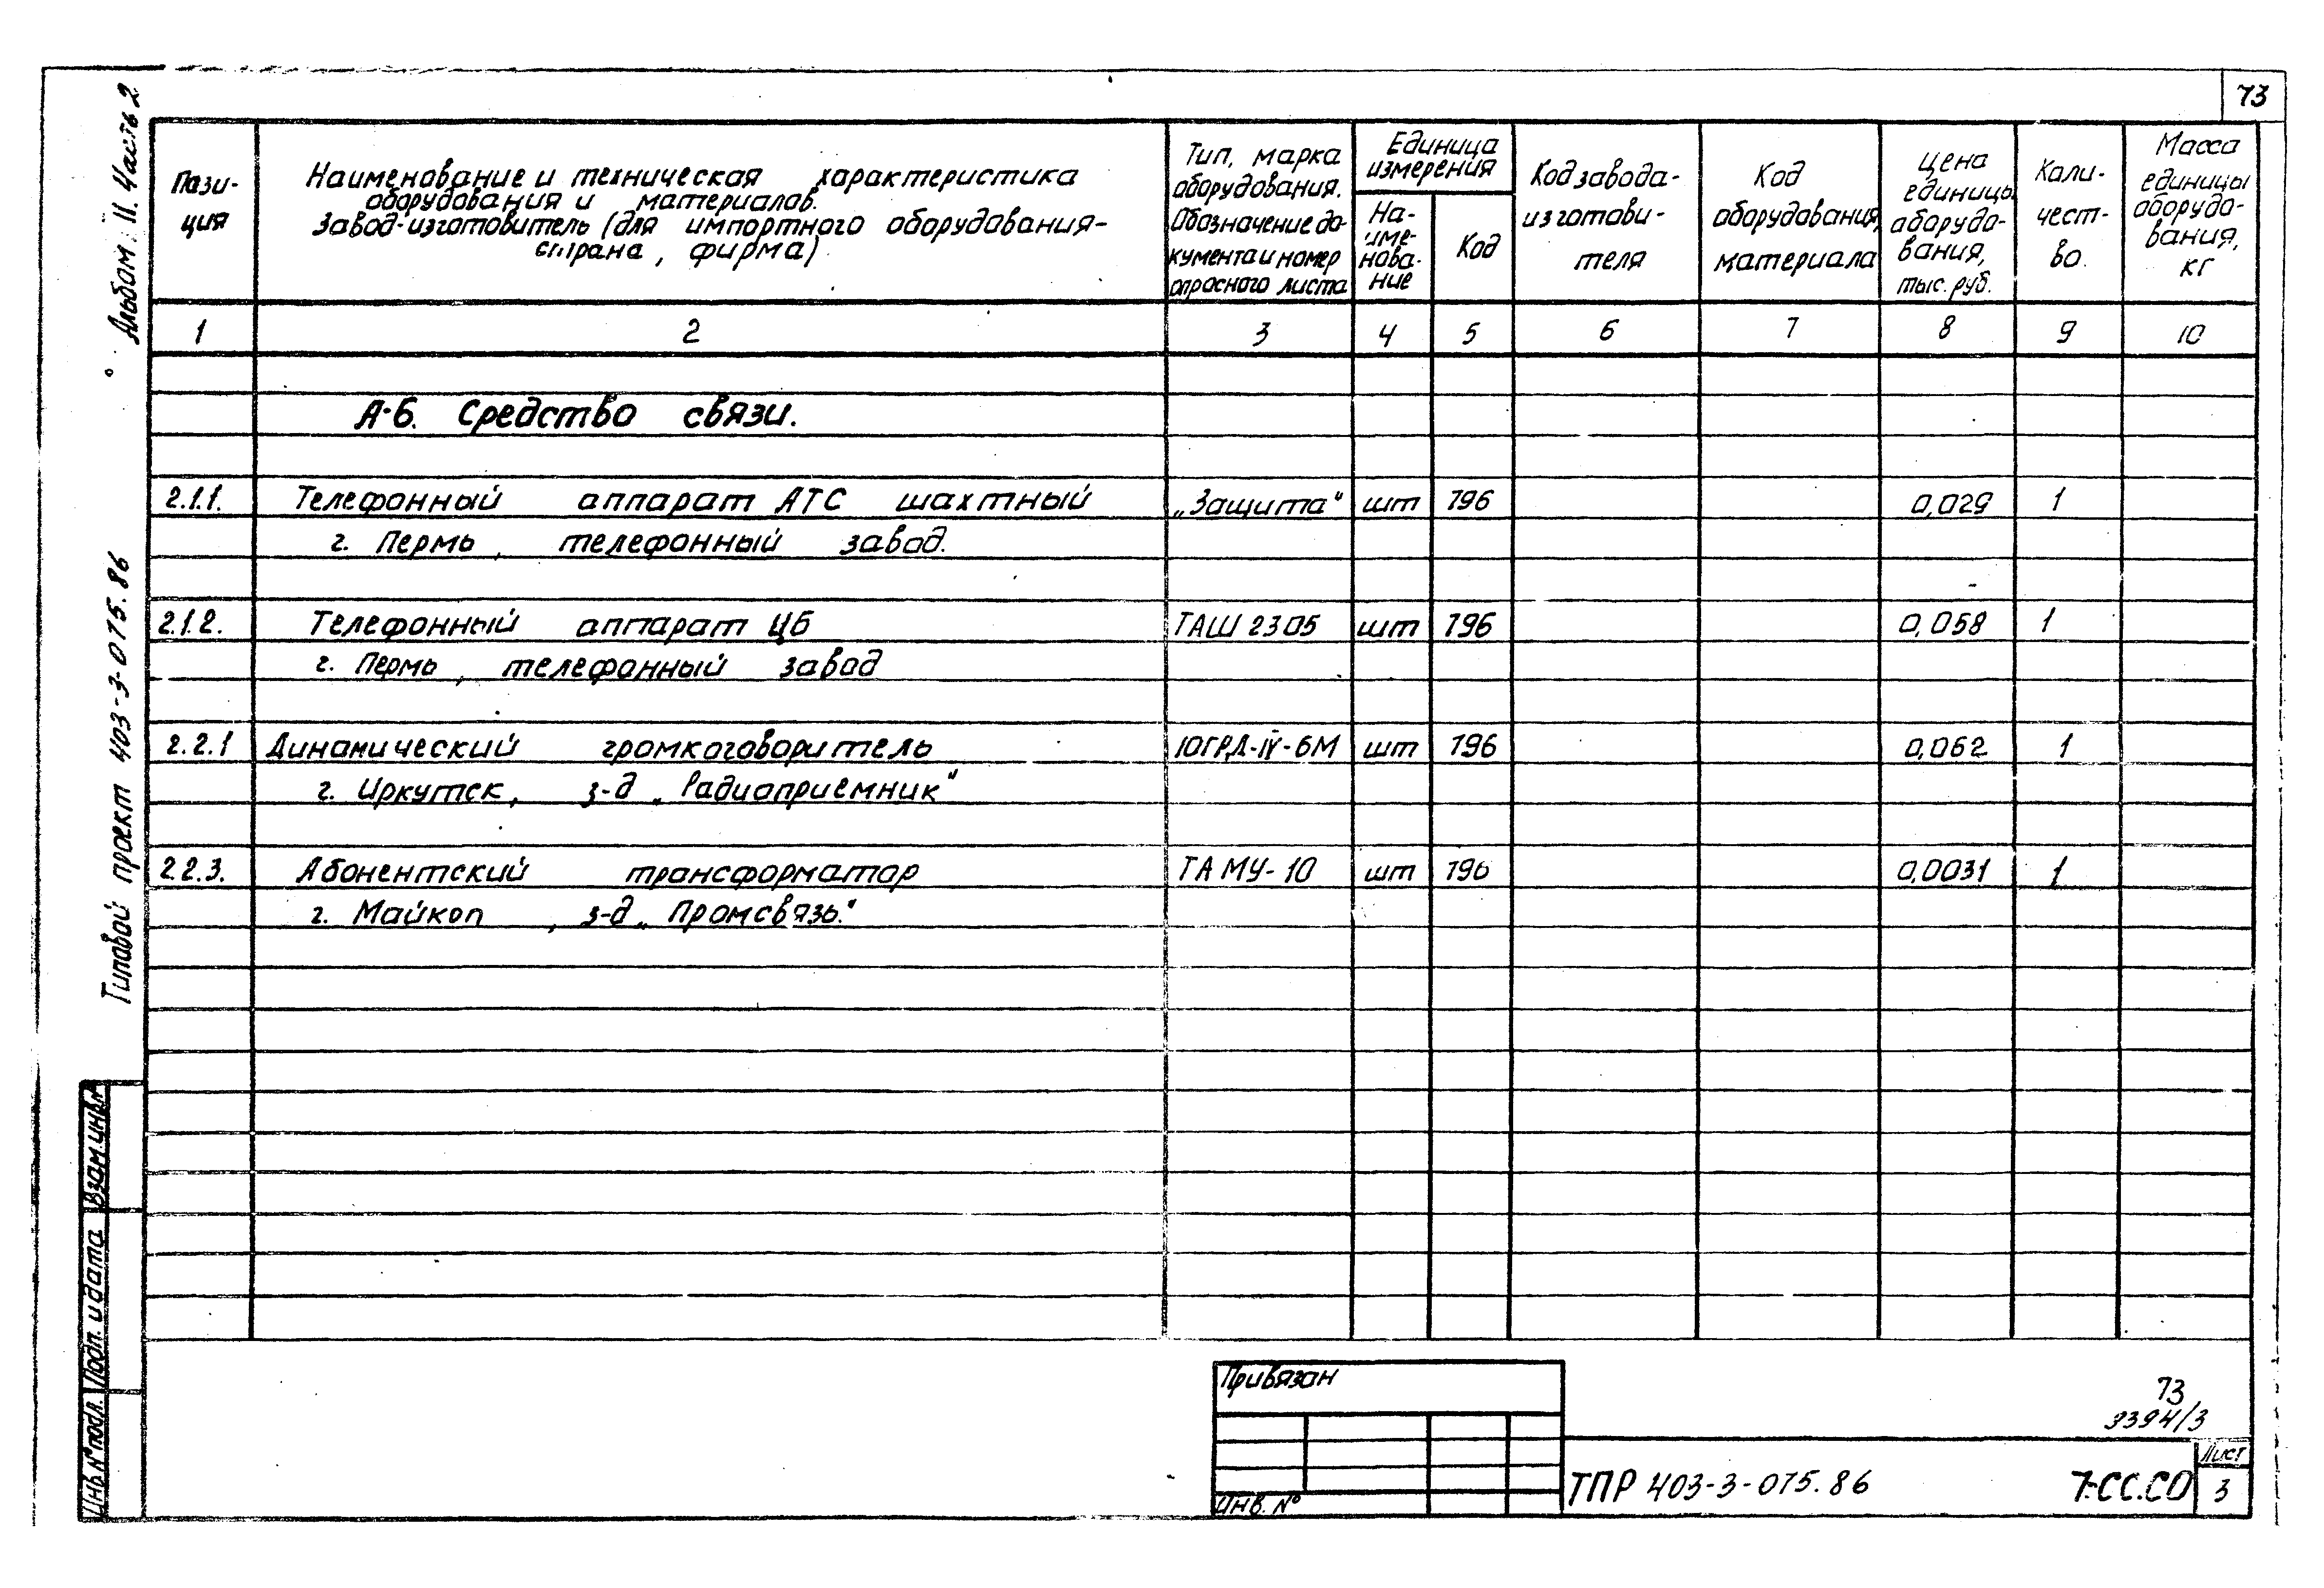 73
Альбом II. Часть 2
Типовой проект 403-3-075.86
Пози-
ция
Наименование и техническая характеристика
оборудования и материалов.
Завод-изготовитель (для импортного оборудования-
страна, фирма)
Тип, марка
оборудования.
Обозначение до-
кумента и номер
опросного листа
Единица
измерения
На-
име-
нова-
ние
Код
Код завода-
изготови-
теля
Код
оборудования,
материала
Цена
единицы
оборудо-
вания,
тыс. руб.
Коли-
чест-
во.
Масса
единицы
оборудо-
вания,
кг
1 2 3 4 5 6 7 8 9 10
А-6. Средство связи.
2.1.1. Телефонный аппарат АТС шахтный „Защита" шт 796 0,029 1
г. Пермь, телефонный завод.
2.1.2. Телефонный аппарат ЦБ ТАШ 2305 шт 796 0,058 1
г. Пермь, телефонный завод
2.2.1 Динамический громкоговоритель 10ГРД-IV-6М шт 796 0,062 1
г. Иркутск, з-д „Радиоприемник"
2.2.3. Абонентский трансформатор ТАМУ-10 шт 796 0,0031 1
г. Майкоп, з-д „Промсвязь."
Взам инв.№
Подп. и дата
Инв.№ подл.
Привязан
Инв. №
73
3394/3
ТПР 403-3-075.86 7-СС.СО
Лист
3